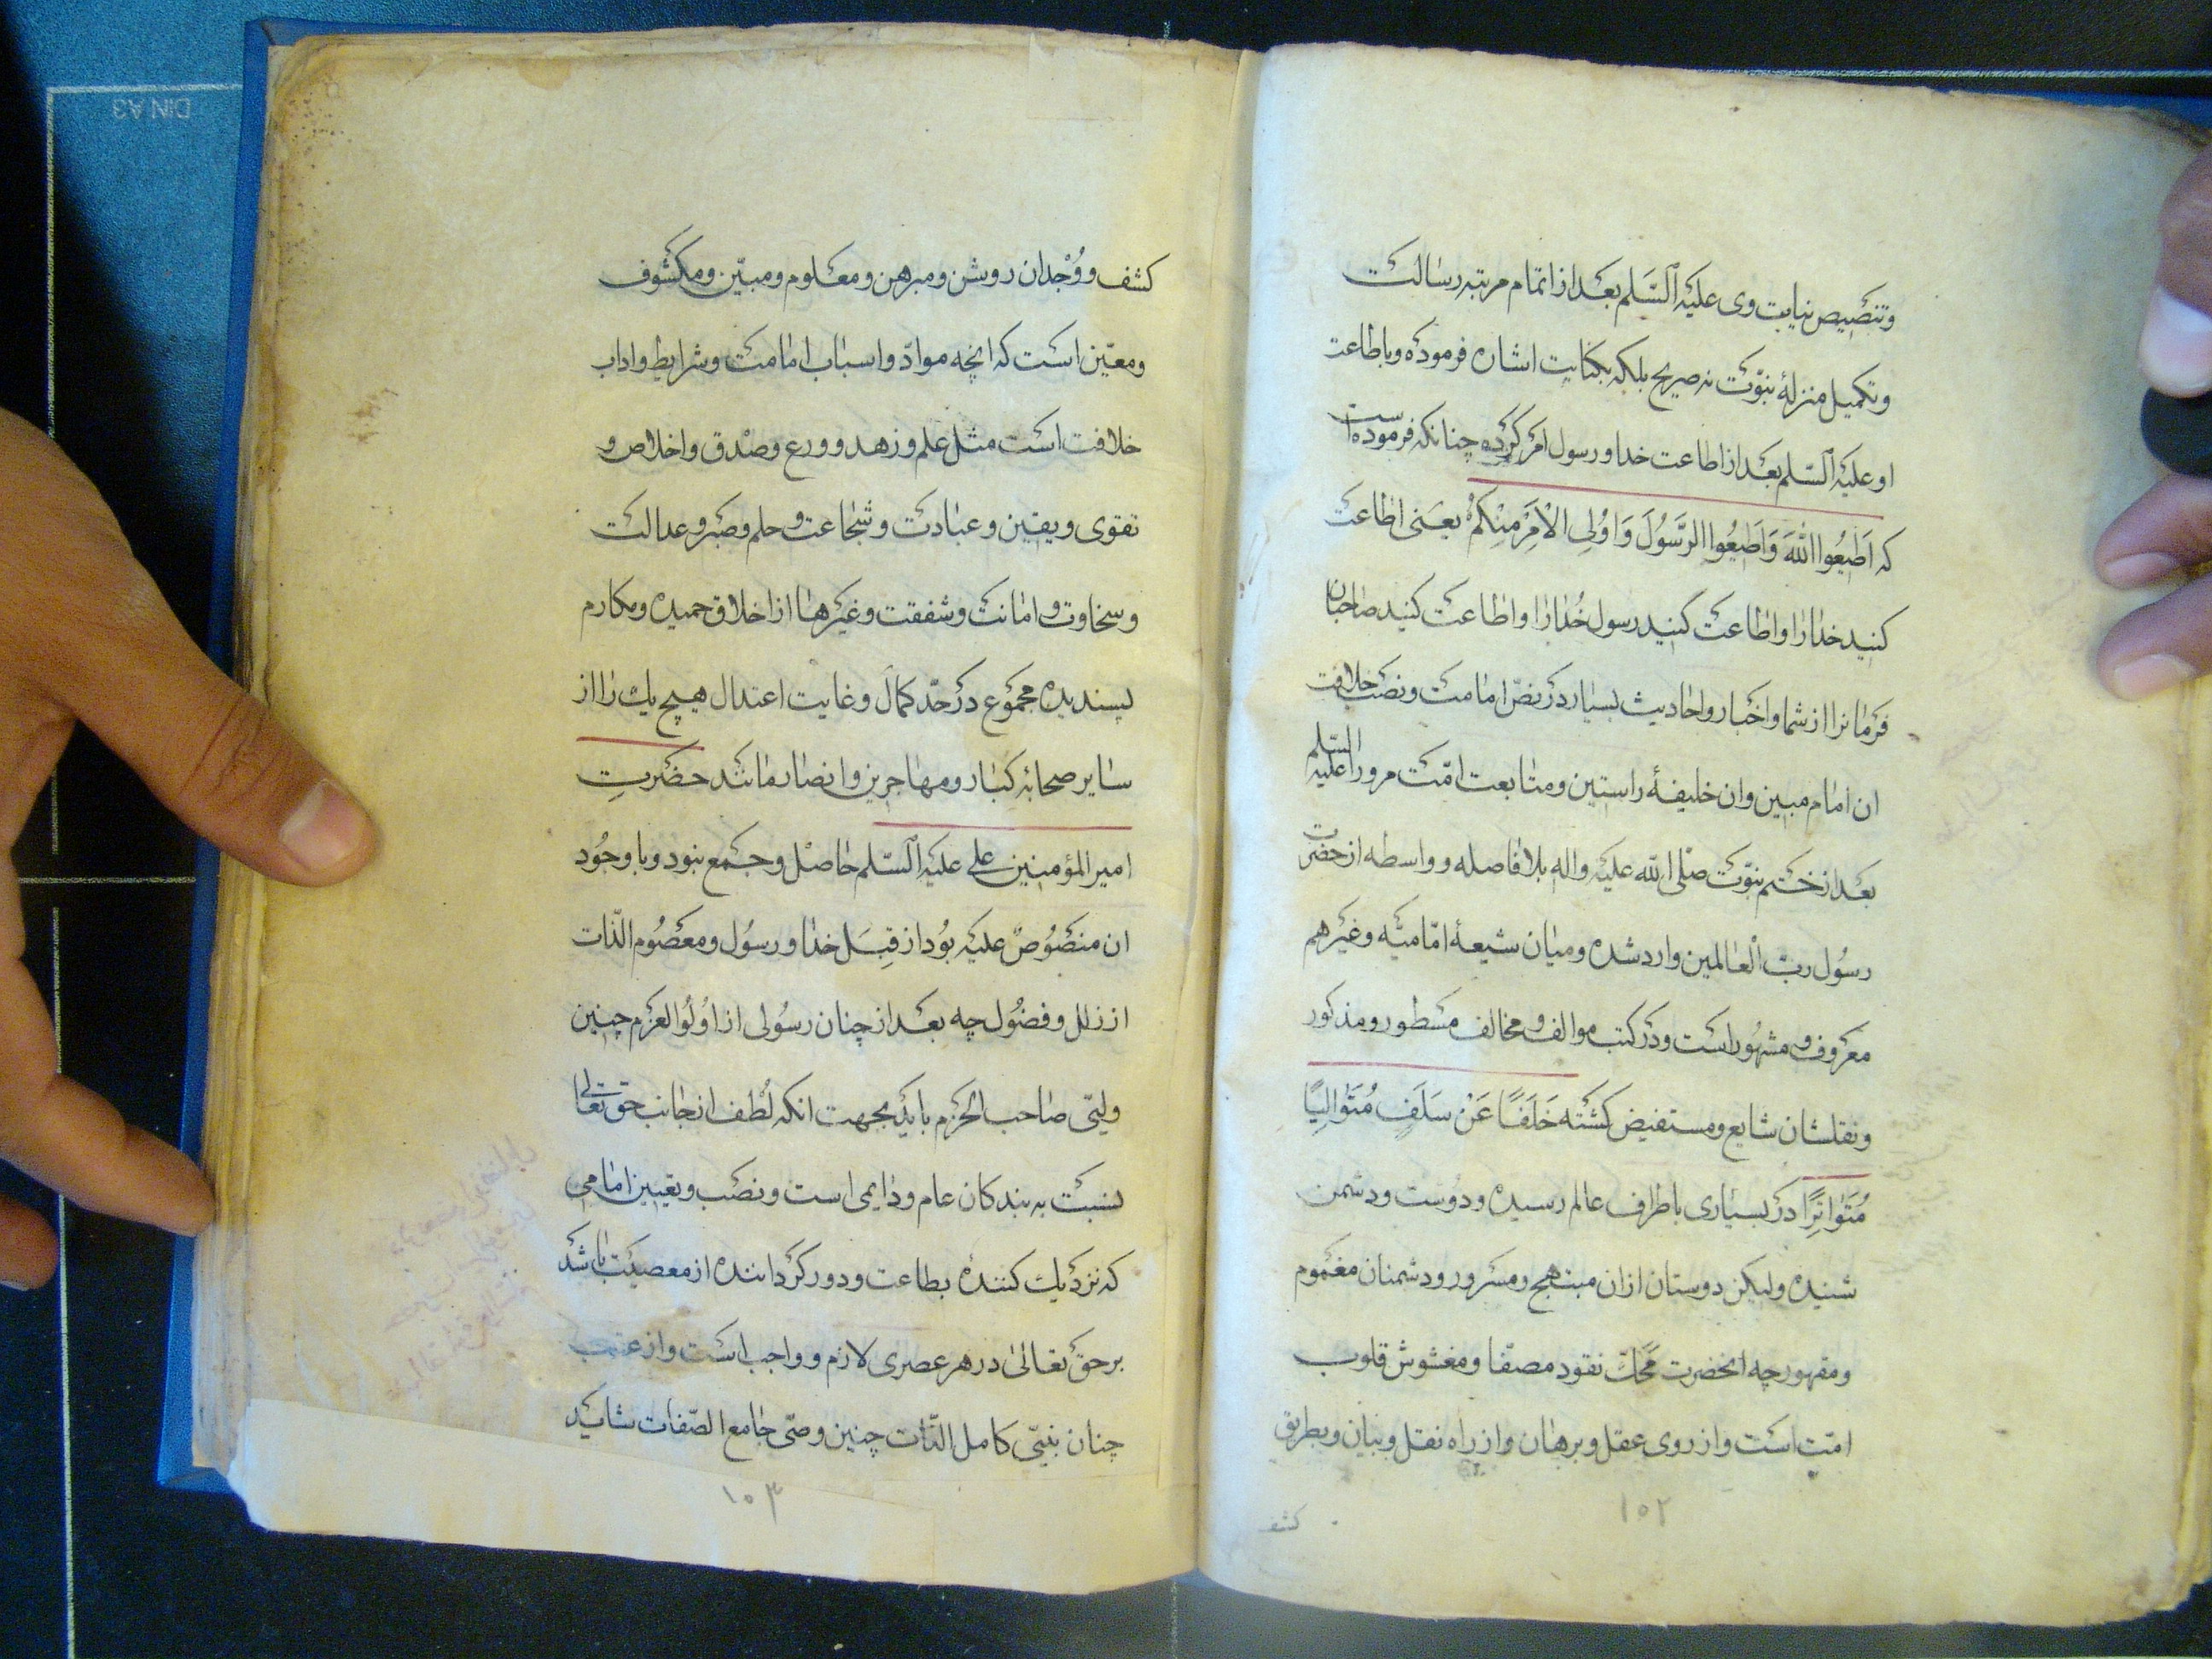 وتنصیص نیابت وی علیه السّلم بعد از اتمام مرتبه رسالت
وتکمیل منزلهٔ نبوّت نه صریح بلکه بکنایت اشاره فرموده وباطاعت
او علیه السّلم بعد از اطاعت خدا ورسول امر کرده چنانکه فرموده است
که اَطیعُوا اللّٰهَ وَاَطیعُوا الرَّسُولَ وَاوُلِی الْاَمْرِ مِنْکُمْ یعنی اطاعت
کنید خدا را واطاعت کنید رسول خُدا را واطاعت کنید صاحبان
فرمانرا از شما واخبار واحادیث بسیار در نصّ امامت ونصب خلافت
ان امام مبین وان خلیفهٔ راستین ومتابعت امّت مرو را علیه السّلم
بعد از ختم نبوّت صلّی اللّه علیه واله بلافاصله وواسطه از حضرت
رسُول ربّ العالمین وارد شده ومیان شیعهٔ امّامیّه وغیرهم
معروف و مشهُور است ودر کتب موالف و مخالف مسطور ومذکور
ونقلشان شایع ومستفیض کشته خَلَفًا عَنْ سَلَفٍ مُتَوٰالِیًا
مُتَوٰاتِرًا در بسیاری باطراف عالم رسیده ودوست ودشمن
شنیده ولیکن دوستان ازان مبتهج ومسرور ودشمنان مغموم
ومقهور چه انحضرت مَحَکّ نقود مصفّا ومغشوش قلوب
امّت است واز روی عقل وبرهان واز راه نقل وبیان وبطریق
۱۵۲
کشف
کشف ووُجْدان روشن ومبرهن ومعلوم ومبیّن ومکشوف
ومعیّن است که انچه موادّ واسباب امامت وشرایط واداب
خلافت است مثل علم وزهد وورع وصْدق واخلاص و
تقوی ویقین وعبادت وشجاعت و حلم وصبر وعدالت
وسخاوت و امانت وشفقت وغیرها از اخلاق حمیده ومکارم
پسندیده مجموع در حدّ کمال وغایت اعتدال هیچ یك را از
سایر صحابهٔ کبار ومهاجرین وانصار مانند حضرتِ
امیر المؤمنین علی علیه السّلم حاصْل وجمع نبود وباوجُود
ان منصُوصٌ علیه بوُد از قِبَل خدا ورسُول ومعصُوم الذّات
از زلل وفضُول چه بعد از چنان رسُولی از اوُلوُا العزم چنین
ولیّی صاحب الحزم باید بجهت انکه لُطف از جانب حق تعالی
نسبت به بندکان عام ودایمی است ونصب وتعیین امامی
که نزدیك کنندهٔ بطاعت ودور کرداننده از معصیت باشد
بر حق تعالیٰ در هر عصری لازم وواجب است واز عقب
چنان نبیّی کامل الذّات چنین وصّی جامع الصّفات شاید
۱۵۳